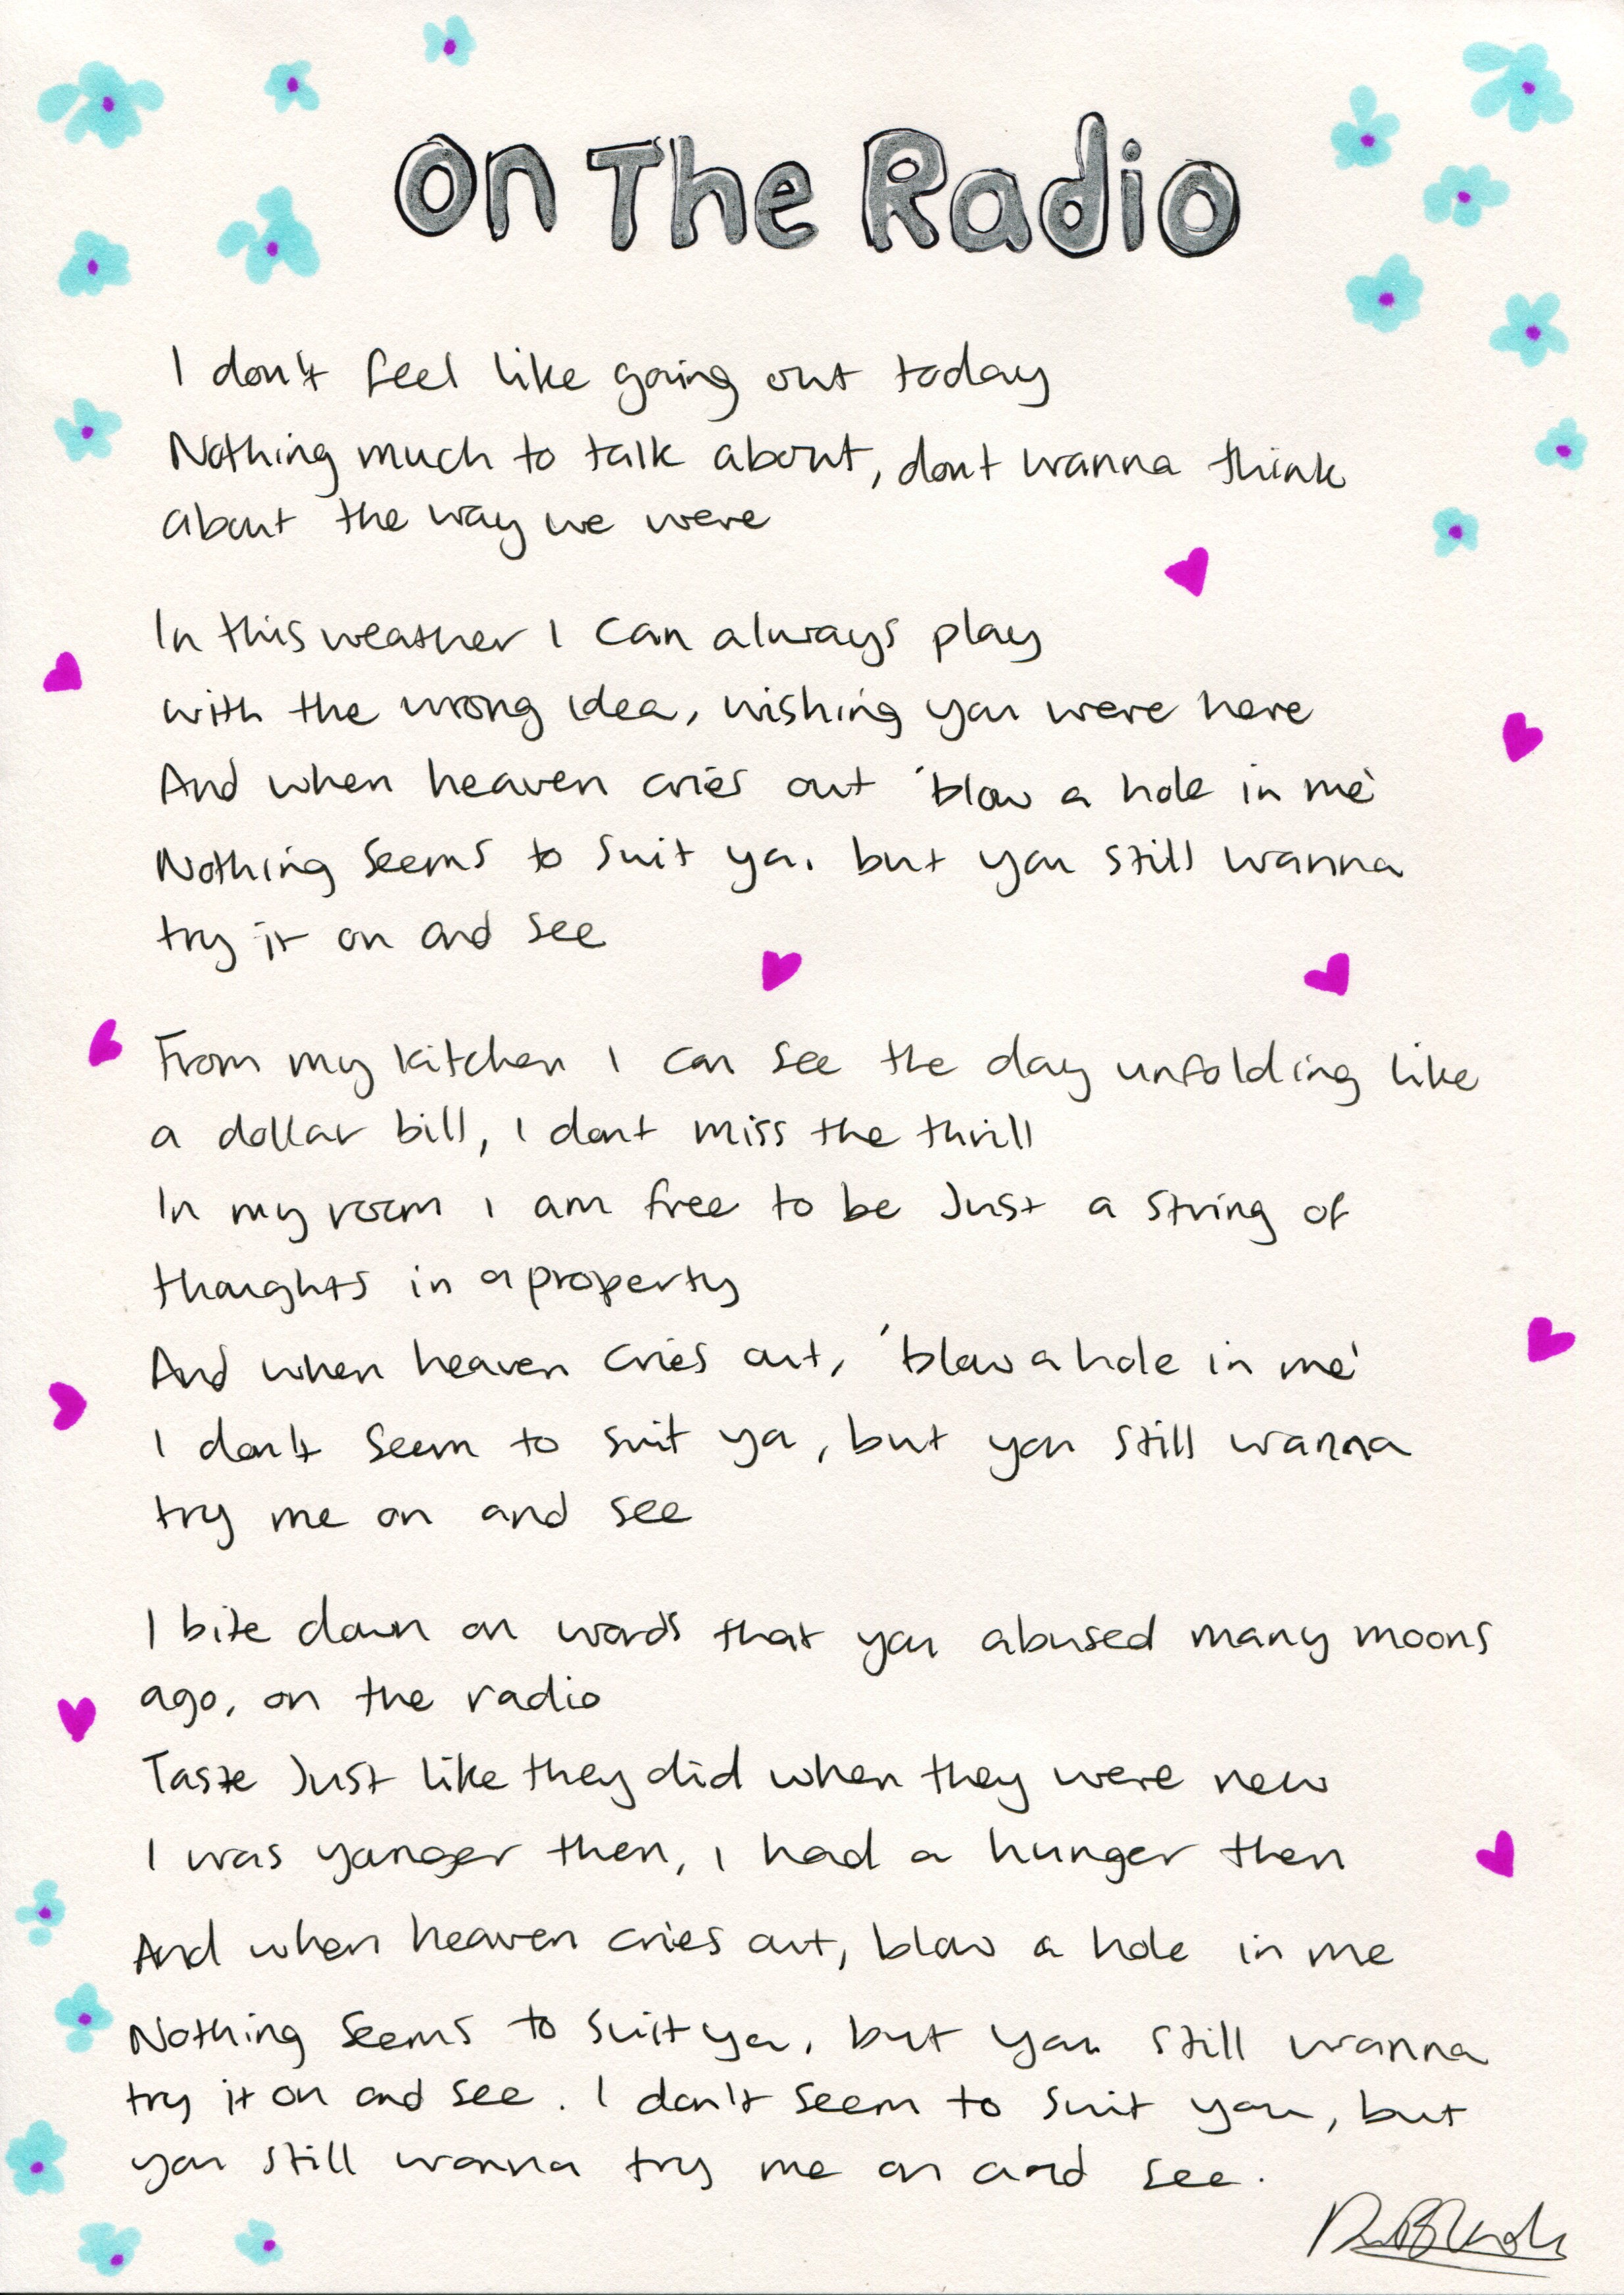 On The Radio
I don't feel like going out today
Nothing much to talk about, dont wanna think
about the way we were
In this weather I can always play
with the wrong idea, wishing you were here
And when heaven cries out 'blow a hole in me'
Nothing seems to suit ya, but you still wanna
try it on and see
From my kitchen I can see the day unfolding like
a dollar bill, I dont miss the thrill
In my room I am free to be Just a string of
thoughts in a property
And when heaven cries out, 'blow a hole in me'
I don't seem to suit ya, but you still wanna
try me on and see
I bite down on words that you abused many moons
ago, on the radio
Taste Just like they did when they were new
I was younger then, I had a hunger then
And when heaven cries out, blow a hole in me
Nothing seems to suit ya, but you still wanna
try it on and see. I don't seem to suit you, but
you still wanna try me on and see.